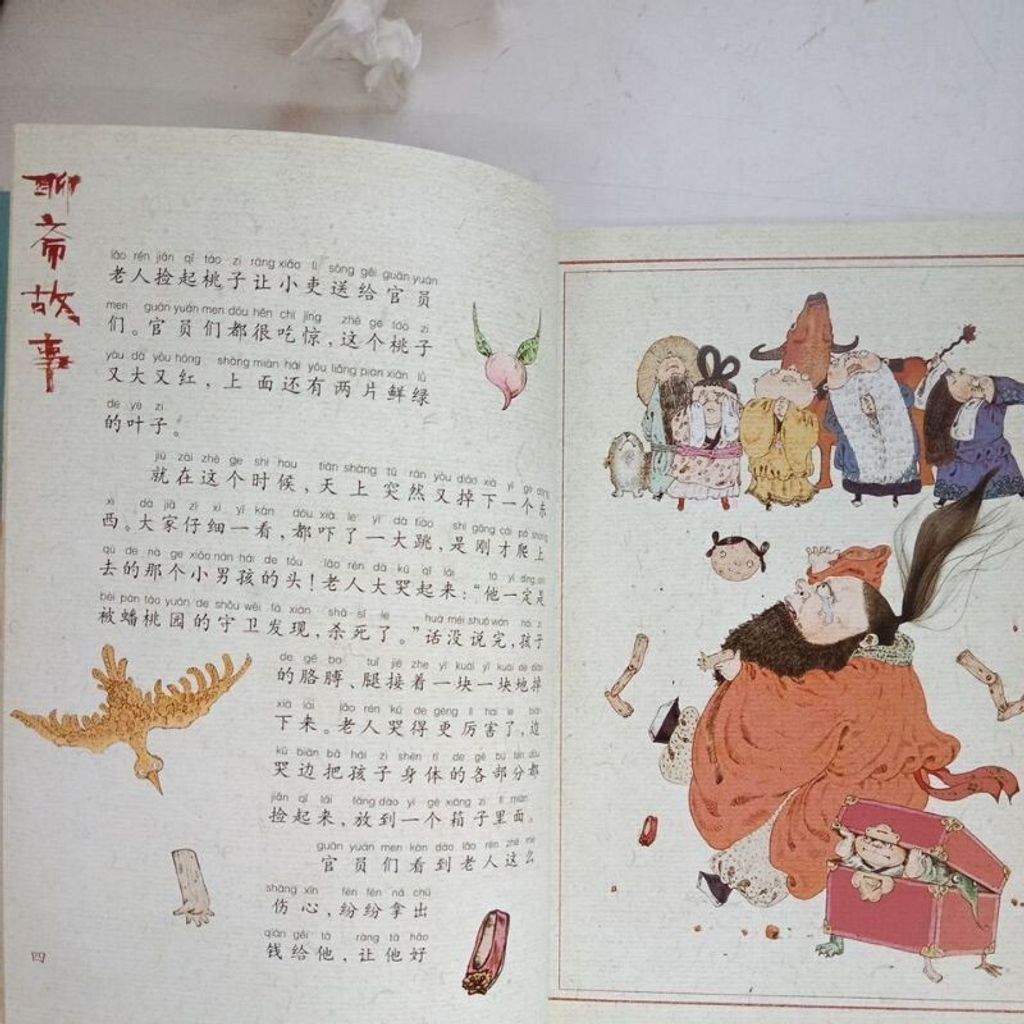 聊斋故事
lǎo rén jiǎn qǐ táo zi ràng xiǎo lì sòng gěi guān yuán
老人捡起桃子让小吏送给官员
men guān yuán men dōu hěn chī jīng zhè ge táo zi
们。官员们都很吃惊，这个桃子
yòu dà yòu hóng shàng miàn hái yǒu liǎng piàn xiān lǜ
又大又红，上面还有两片鲜绿
de yè zi
的叶子。
jiù zài zhè ge shí hou tiān shàng tū rán yòu diào xià yí gè dōng
就在这个时候，天上突然又掉下一个东
xi dà jiā zǐ xì yí kàn dōu xià le yí dà tiào shì gāng cái pá shàng
西。大家仔细一看，都吓了一大跳，是刚才爬上
qù de nà ge xiǎo nán hái de tóu lǎo rén dà kū qǐ lái tā yí dìng shì
去的那个小男孩的头！老人大哭起来：“他一定是
bèi pán táo yuán de shǒu wèi fā xiàn shā sǐ le huà méi shuō wán hái zi
被蟠桃园的守卫发现，杀死了。”话没说完，孩子
de gē bo tuǐ jiē zhe yí kuài yí kuài de diào
的胳膊、腿接着一块一块地掉
xià lái lǎo rén kū de gèng lì hai le biān
下来。老人哭得更厉害了，边
kū biān bǎ hái zi shēn tǐ de gè bù fen dōu
哭边把孩子身体的各部分都
jiǎn qǐ lái fàng dào yí gè xiāng zi lǐ miàn
捡起来，放到一个箱子里面。
guān yuán men kàn dào lǎo rén zhè me
官员们看到老人这么
shāng xīn fēn fēn ná chū
伤心，纷纷拿出
qián gěi tā ràng tā hǎo
钱给他，让他好
四